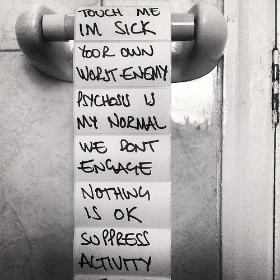 TOUCH ME
IM SICK
YOUR OWN
WORST ENEMY
PSYCHOSIS IS
MY NORMAL
WE DONT
ENGAGE
NOTHING
IS OK
SUPPRESS
ACTIVITY